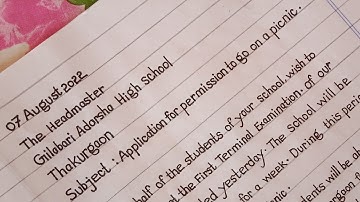 07 August 2022
The Headmaster
Gilabari Adorsha High School
Thakurgaon
Subject : Application for permission to go on a picnic.
half of the students of your school, wish to
the First Terminal Examination of our
yesterday. The school will be
for a week. During this